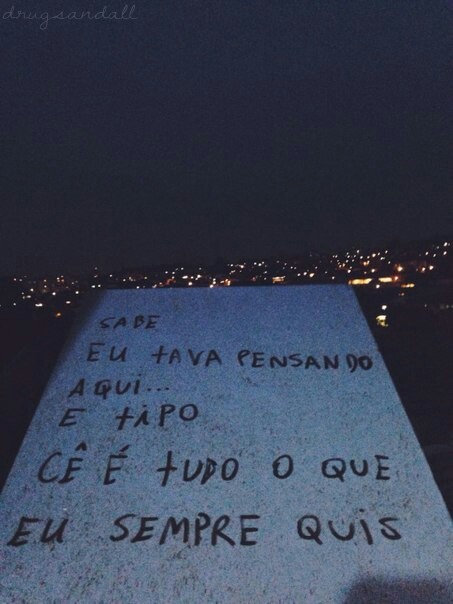 drugsandall
SABE
EU tAVA PENSANDO
AQUI...
E tiPO
CÊ É tUDO O QUE
EU SEMPRE QUIS